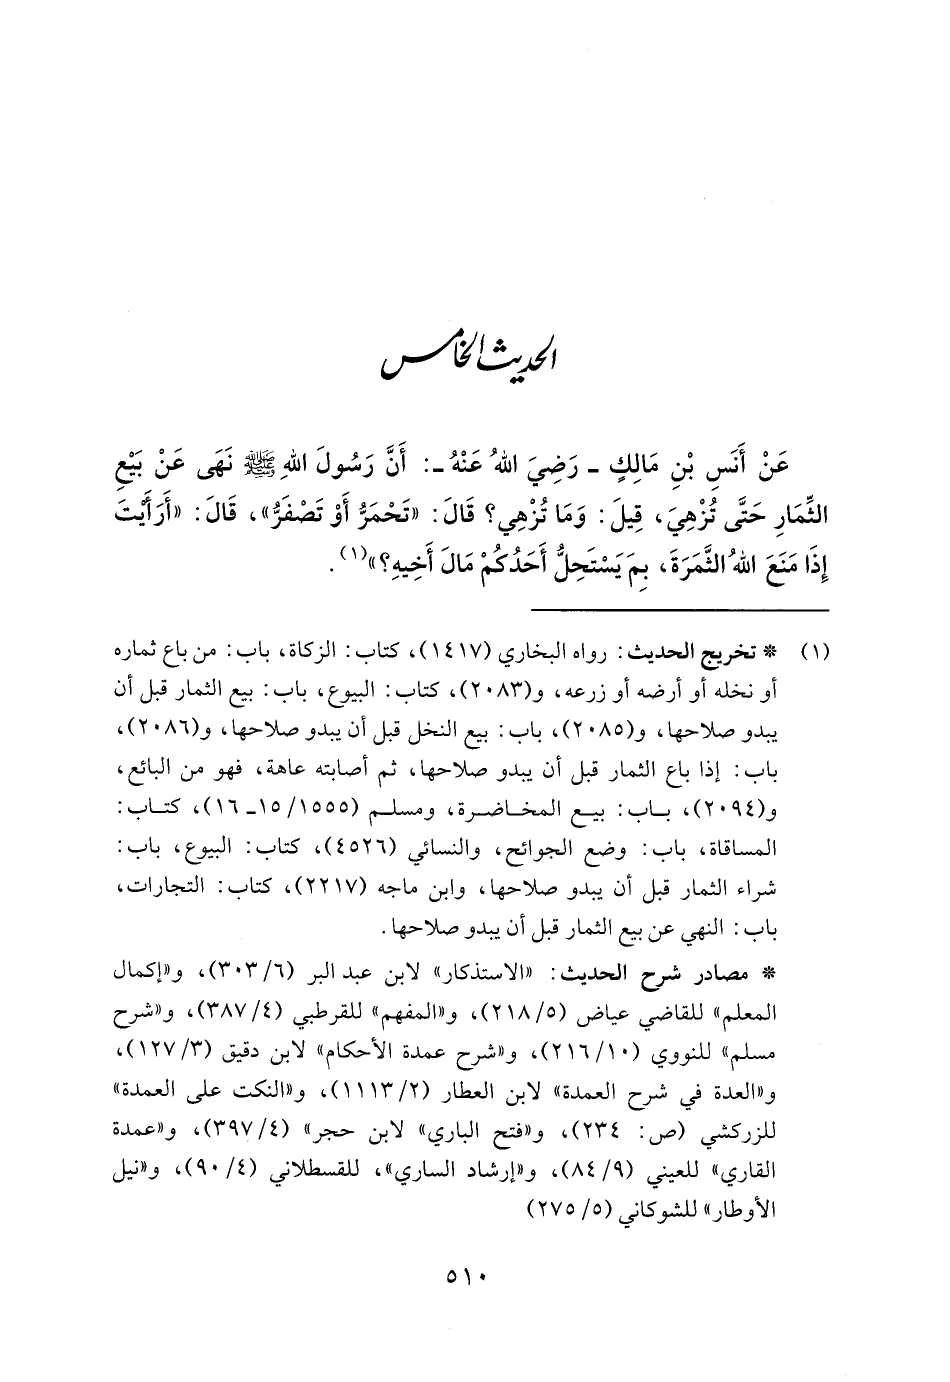 الحديث الخامس
عَنْ أَنَسِ بْنِ مَالِكٍ ـ رَضِيَ اللهُ عَنْهُ ـ: أَنَّ رَسُولَ اللهِ ﷺ نَهَى عَنْ بَيْعِ
الثِّمَارِ حَتَّى تُزْهِيَ، قِيلَ: وَمَا تُزْهِي؟ قَالَ: «تَحْمَرُّ أَوْ تَصْفَرُّ»، قَالَ: «أَرَأَيْتَ
إِذَا مَنَعَ اللهُ الثَّمَرَةَ، بِمَ يَسْتَحِلُّ أَحَدُكُمْ مَالَ أَخِيهِ؟»(١).
(١) * تخريج الحديث: رواه البخاري (١٤١٧)، كتاب: الزكاة، باب: من باع ثماره
أو نخله أو أرضه أو زرعه، و(٢٠٨٣)، كتاب: البيوع، باب: بيع الثمار قبل أن
يبدو صلاحها، و(٢٠٨٥)، باب: بيع النخل قبل أن يبدو صلاحها، و(٢٠٨٦)،
باب: إذا باع الثمار قبل أن يبدو صلاحها، ثم أصابته عاهة، فهو من البائع،
و(٢٠٩٤)، باب: بيع المخاضرة، ومسلم (١٥٥٥/ ١٥ـ ١٦)، كتاب:
المساقاة، باب: وضع الجوائح، والنسائي (٤٥٢٦)، كتاب: البيوع، باب:
شراء الثمار قبل أن يبدو صلاحها، وابن ماجه (٢٢١٧)، كتاب: التجارات،
باب: النهي عن بيع الثمار قبل أن يبدو صلاحها.
* مصادر شرح الحديث: «الاستذكار» لابن عبد البر (٦/ ٣٠٣)، و«إكمال
المعلم» للقاضي عياض (٥/ ٢١٨)، و«المفهم» للقرطبي (٤/ ٣٨٧)، و«شرح
مسلم» للنووي (١٠/ ٢١٦)، و«شرح عمدة الأحكام» لابن دقيق (٣/ ١٢٧)،
و«العدة في شرح العمدة» لابن العطار (٢/ ١١١٣)، و«النكت على العمدة»
للزركشي (ص: ٢٣٤)، و«فتح الباري» لابن حجر (٤/ ٣٩٧)، و«عمدة
القاري» للعيني (٩/ ٨٤)، و«إرشاد الساري»، للقسطلاني (٤/ ٩٠)، و«نيل
الأوطار» للشوكاني (٥/ ٢٧٥)
٥١٠